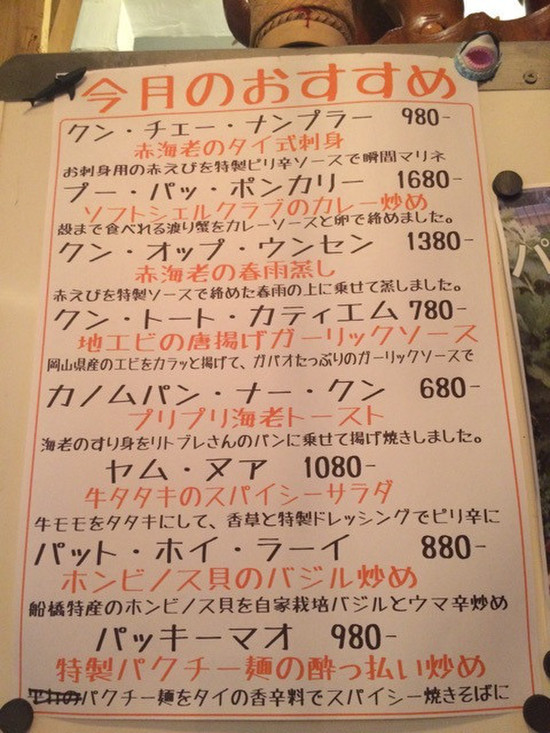 今月のおすすめ
クン・チェー・ナンプラー 980-
赤海老のタイ式刺身
お刺身用の赤えびを特製ピリ辛ソースで瞬間マリネ
プー・パッ・ポンカリー 1680-
ソフトシェルクラブのカレー炒め
殻まで食べれる渡り蟹をカレーソースと卵で締めました。
クン・オップ・ウンセン 1380-
赤海老の春雨蒸し
赤えびを特製ソースで締めた春雨の上に乗せて蒸しました。
クン・トート・カティエム 780-
地エビの唐揚げガーリックソース
岡山県産のエビをカラッと揚げて、ガパオたっぷりのガーリックソースで
カノムパン・ナー・クン 680-
プリプリ海老トースト
海老のすり身をリトプレさんのパンに乗せて揚げ焼きしました。
ヤム・ヌア 1080-
牛タタキのスパイシーサラダ
牛モモをタタキにして、香草と特製ドレッシングでピリ辛に
パット・ホイ・ラーイ 880-
ホンビノス貝のバジル炒め
船橋特産のホンビノス貝を自家栽培バジルとウマ辛炒め
パッキーマオ 980-
特製パクチー麺の酔っ払い炒め
パクチー麺をタイの香辛料でスパイシー焼きそばに